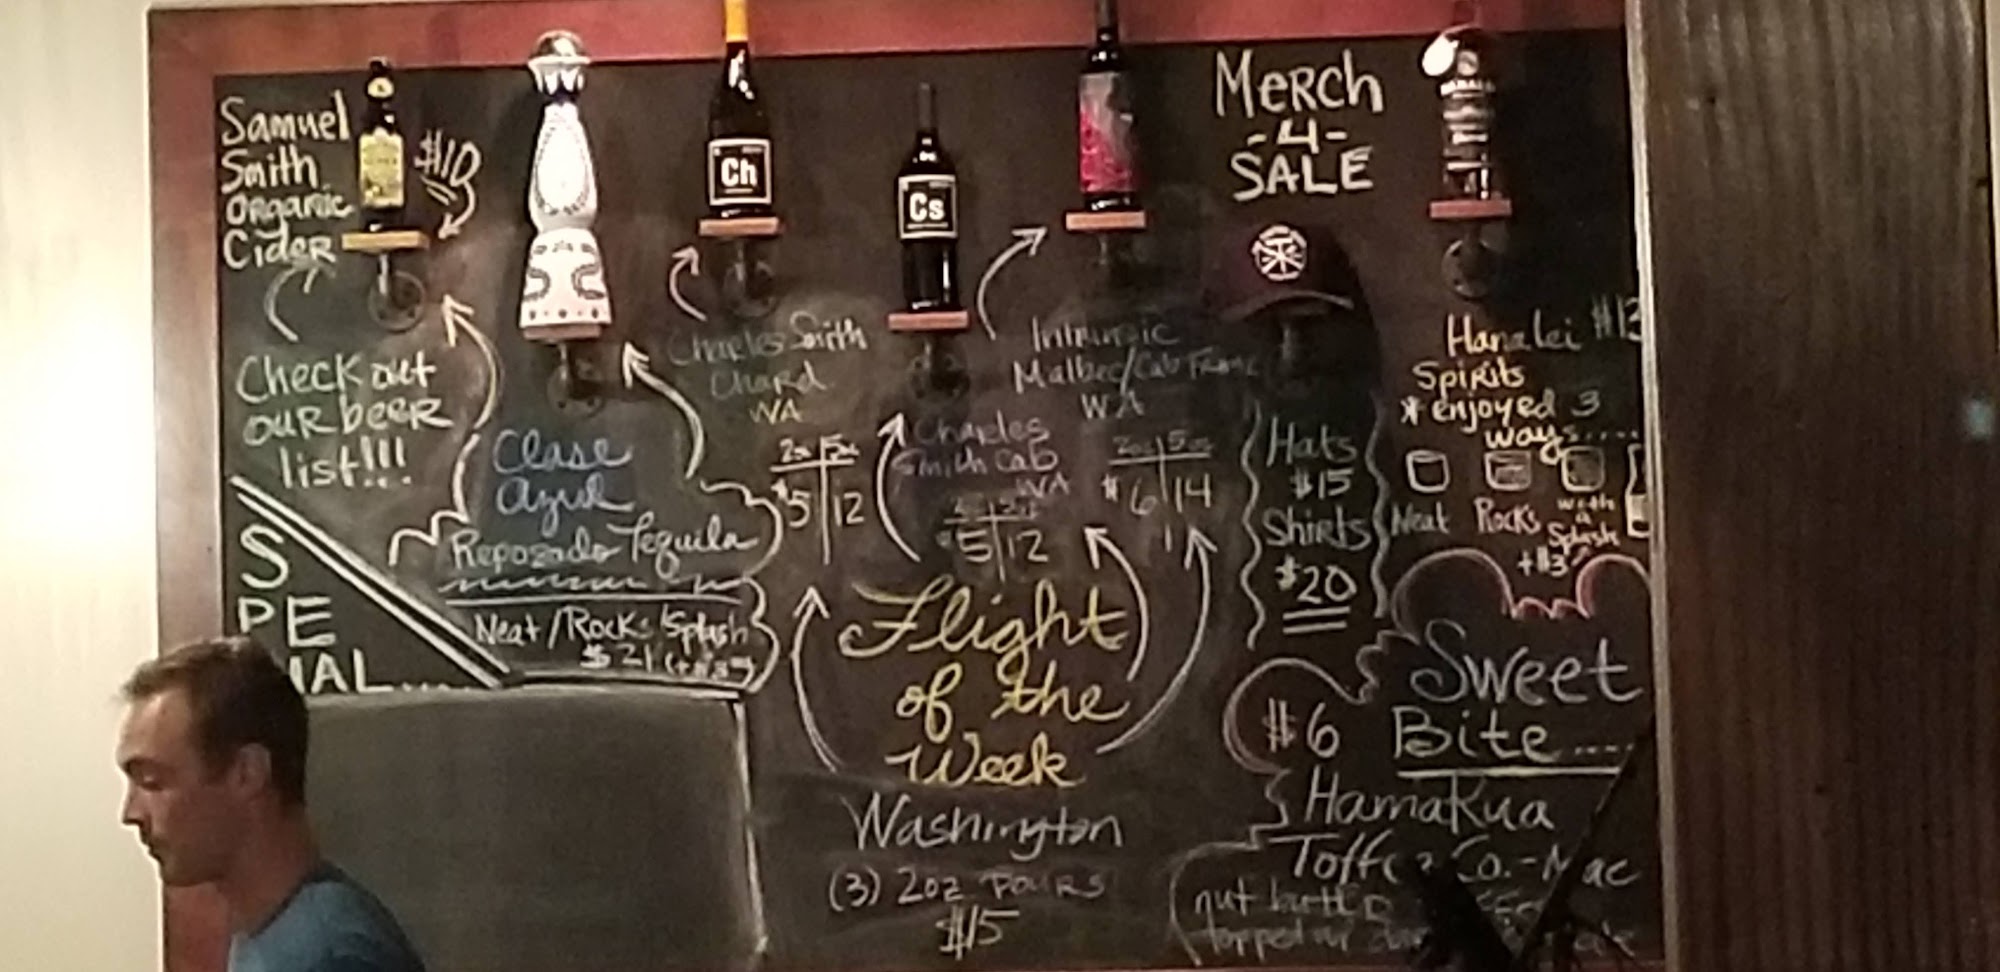 Samuel
Smith
Organic
Cider
$10
Check out
our beer
list!!!
S
PE
IAL....
Clase
azul
Reposado Tequila
Neat/Rocks/Splash
$21
Ch
Charles Smith
Chard
WA
2oz 5oz
$5 12
Cs
Charles
Smith Cab
WA
$5 12
Intrinsic
Malbec/Cab Franc
WA
2oz 5oz
$6 14
Flight
of the
Week
Washington
(3) 2oz Pours
$15
Merch
-4-
SALE
Hats
$15
Shirts
$20
Hanalei $13
Spirits
*enjoyed 3
ways.....
Neat
Rocks
with
a
Splash
+$3
Sweet
$6 Bite....
Hamakua
Toffee Co.-Mac
nut butter
topped w/